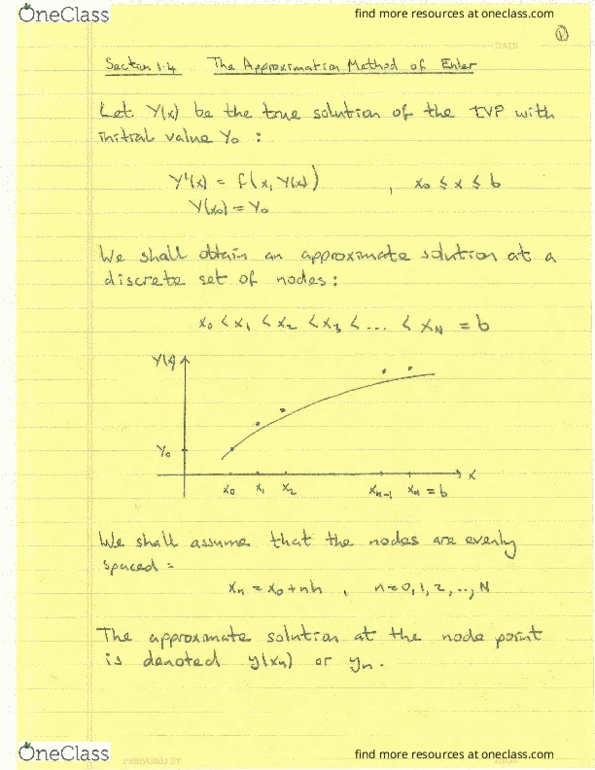 OneClass
find more resources at oneclass.com
DATE
1
Section 1.4 The Approximation Method of Euler
Let Y(x) be the true solution of the IVP with
initial value Y₀ :
Y'(x) = f(x, Y(x)) , x₀ ≤ x ≤ b
Y(x₀) = Y₀
We shall obtain an approximate solution at a
discrete set of nodes:
x₀ < x₁ < x₂ < x₃ < ... < x_N = b
Y(x)
Y₀
x
x₀ x₁ x₂ xₙ₋₁ xₙ = b
We shall assume that the nodes are evenly
spaced =
xₙ = x₀ + nh , n = 0, 1, 2, .., N
The approximate solution at the node point
is denoted y(xₙ) or yₙ.
OneClass
PREPARED BY
find more resources at oneclass.com